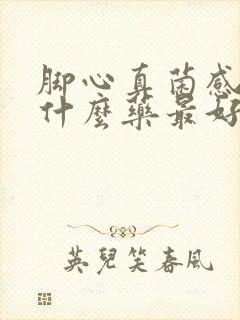 脚心真菌感
什麼藥最好
英兒笑春風